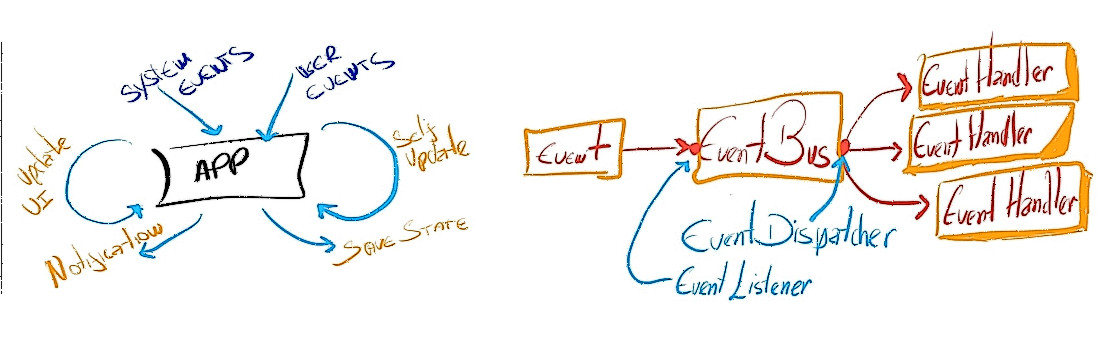 SYSTEM
EVENTS
USER
EVENTS
update
UI
APP
Self
update
Notification
SAVE STATE
Event
Event Bus
Event Handler
Event Handler
Event Handler
Event Dispatcher
Event Listener